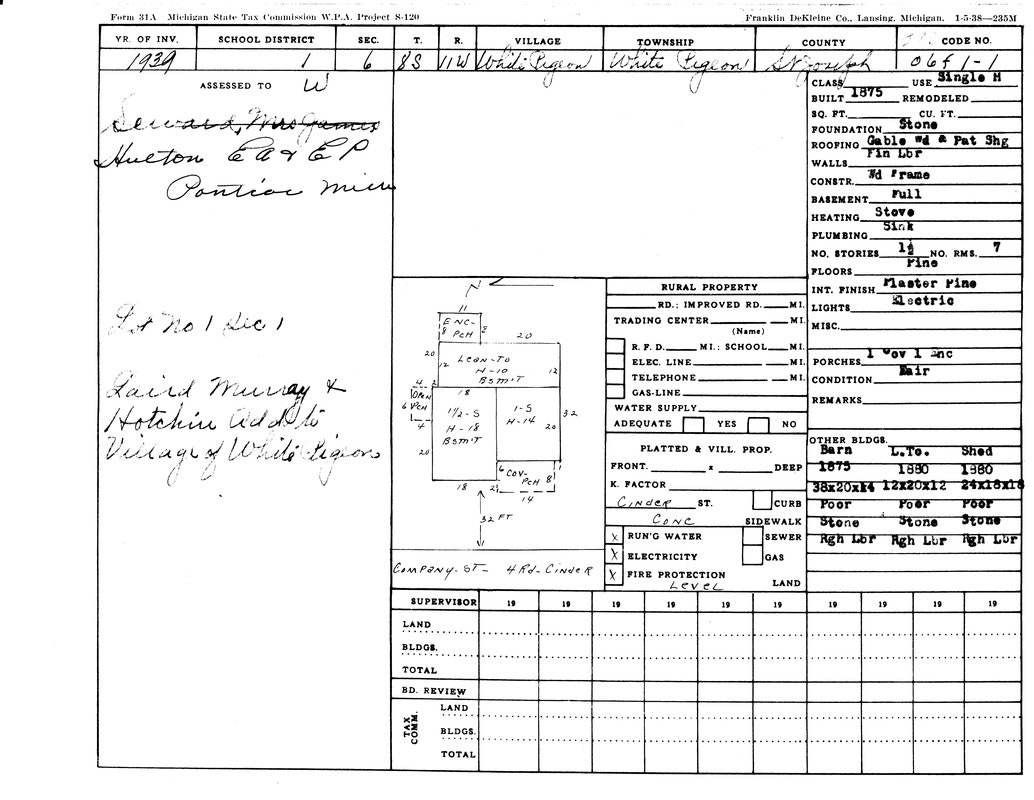 Form 31A Michigan State Tax Commission W.P.A. Project S-120
Franklin DeKleine Co., Lansing, Michigan. 1-5-38—235M
YR. OF INV. SCHOOL DISTRICT SEC. T. R. VILLAGE TOWNSHIP COUNTY CODE NO.
1939 1 6 8S 11W White Pigeon White Pigeon St Joseph 06f 1-1
ASSESSED TO W
Seward, Mrs James
Hulton E A & E P
Pontiac Mich
Lot No 1 Sec 1
Laird Murray &
Hotchin Add to
Village of White Pigeon
N
11
ENC-
8 PCH 8
20
20
LEAN-TO
12 H-10 12
BSMT
4 2
18
OPEN
6 PCH
4
1½-S
H-18
BSMT
1-S
H-14
20
32
20
6 COV-
PCH 8
18 2 14
32 FT
COMPANY-ST- 4 Rd-CINDER
RURAL PROPERTY
RD.; IMPROVED RD. MI.
TRADING CENTER MI.
(Name)
R.F.D. MI.; SCHOOL MI.
ELEC. LINE MI.
TELEPHONE MI.
GAS-LINE
WATER SUPPLY
ADEQUATE YES NO
PLATTED & VILL. PROP.
FRONT. x DEEP
K. FACTOR
CINDER ST. CURB
CONC SIDEWALK
X RUN'G WATER SEWER
X ELECTRICITY GAS
X FIRE PROTECTION
LEVEL LAND
CLASS USE Single H
BUILT 1875 REMODELED
SQ. FT. CU. FT.
FOUNDATION Stone
ROOFING Gable Wd & Pat Shg
WALLS Fin Lbr
CONSTR. Wd Frame
BASEMENT Full
HEATING Stove
PLUMBING Sink
NO. STORIES 1½ NO. RMS. 7
FLOORS Pine
INT. FINISH Plaster Pine
LIGHTS Electric
MISC.
PORCHES 1 Cov 1 Enc
CONDITION Fair
REMARKS
OTHER BLDGS.
Barn L.To. Shed
1875 1880 1880
38x20x14 12x20x12 24x18x18
Poor Poor Poor
Stone Stone Stone
Rgh Lbr Rgh Lbr Rgh Lbr
SUPERVISOR 19 19 19 19 19 19 19 19 19
LAND
BLDGS.
TOTAL
BD. REVIEW
TAX COMM.
LAND
BLDGS.
TOTAL